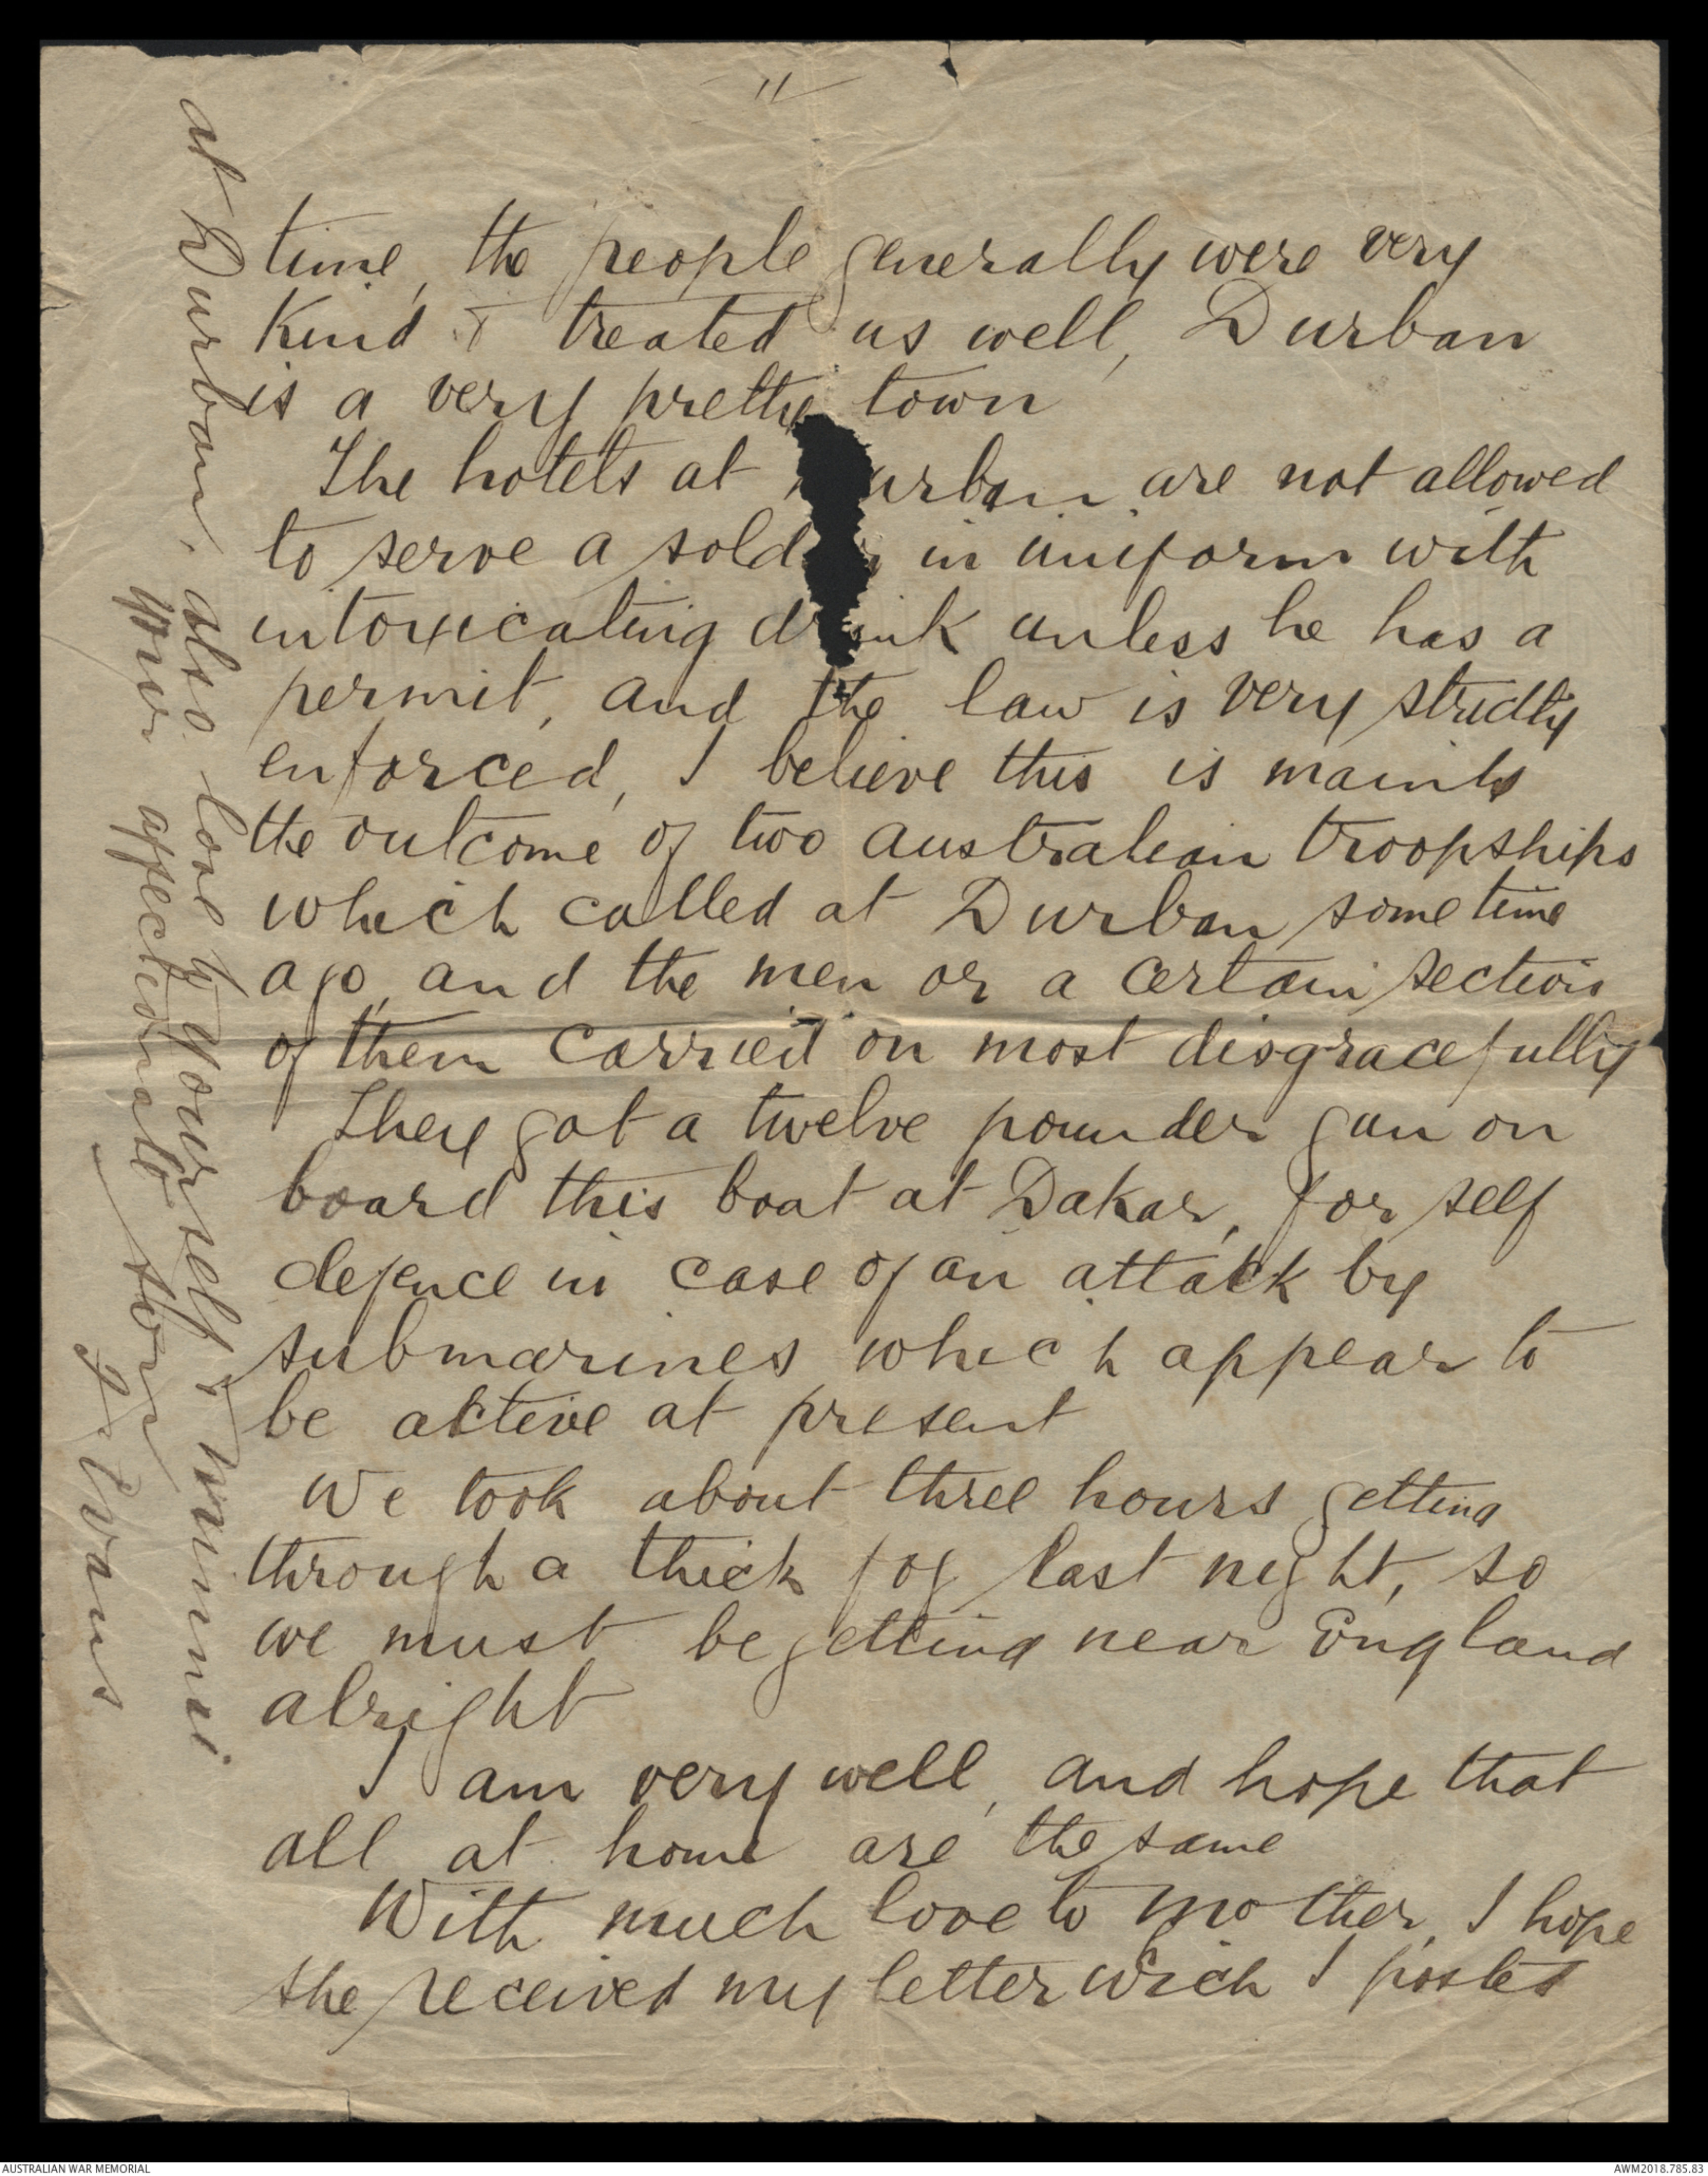 11
time, the people generally were very
kind & treated us well, Durban
is a very pretty town
The hotels at urban are not allowed
to serve a sold in uniform with
intoxicating drink unless he has a
permit, and the law is very strictly
enforced, I believe this is mainly
the outcome of two Australian troopships
which called at Durban sometime
ago, and the men or a certain section
of them carried on most disgracefully
They got a twelve pounder gun on
board this boat at Dakar, for self
defence in case of an attack by
submarines which appear to
be active at present
We took about three hours getting
through a thick fog last night, so
we must be getting near England
alright
I am very well, and hope that
all at home are the same
With much love to mother, I hope
she received my letter wich I posted
at Durban, also love to yourself & Winnie
Your affectionate son
Evans
AUSTRALIAN WAR MEMORIAL
AWM2018.785.83